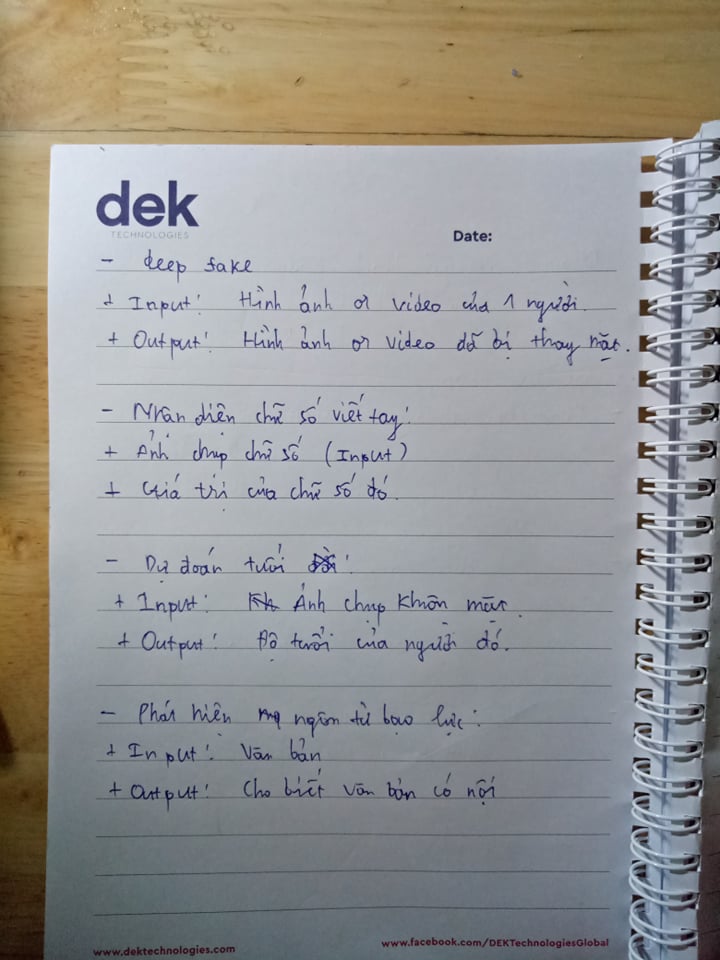 dek
TECHNOLOGIES
Date:
- deep fake
+ Input: Hình ảnh or video của 1 người.
+ Output: Hình ảnh or video đã bị thay mặt.
- Nhận diện chữ số viết tay:
+ Ảnh chụp chữ số (Input)
+ Giá trị của chữ số đó.
- Dự đoán tuổi :
+ Input: Ảnh chụp khuôn mặt.
+ Output: Độ tuổi của người đó.
- Phát hiện ngôn từ bạo lực:
+ Input: Văn bản
+ Output: Cho biết văn bản có nội
www.dektechnologies.com
www.facebook.com/DEKTechnologiesGlobal